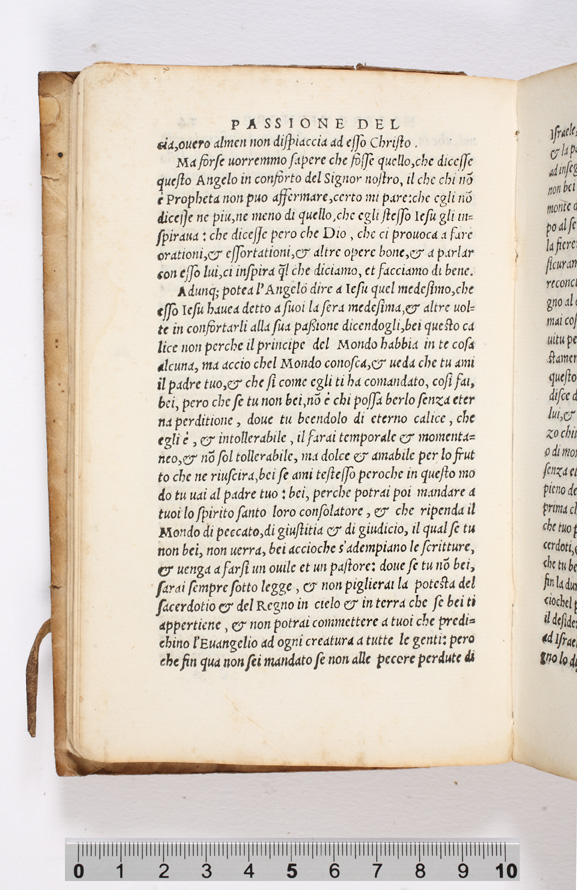 PASSIONE DEL
cia,ouero almen non dispiaccia ad esso Christo.
Ma forse uorremmo sapere che fosse quello,che dicesse
questo Angelo in conforto del Signor nostro, il che chi nõ
è Propheta non puo affermare,certo mi pare:che egli nõ
dicesse ne piu,ne meno di quello,che egli stesso Iesu gli in=
spiraua : che dicesse pero che Dio , che ci prouoca a fare
orationi,& essortationi,& altre opere bone,& a parlar
con esso lui,ci inspira q̃l che diciamo, et facciamo di bene.
Adunq; potea l'Angelo dire a Iesu quel medesimo,che
esso Iesu hauea detto a suoi la sera medesima,& altre uol=
te in confortarli alla sua passione dicendogli,bei questo ca
lice non perche il principe del Mondo habbia in te cosa
alcuna, ma accio chel Mondo conosca,& ueda che tu ami
il padre tuo,& che si come egli ti ha comandato, cosi fai,
bei, pero che se tu non bei,nõ è chi possa berlo senza eter
na perditione , doue tu beendolo di eterno calice , che
egli è , & intollerabile , il farai temporale & momenta=
neo,& nõ sol tollerabile, ma dolce & amabile per lo frut
to che ne riuscira,bei se ami testesso peroche in questo mo
do tu uai al padre tuo : bei, perche potrai poi mandare a
tuoi lo spirito santo loro consolatore , & che ripenda il
Mondo di peccato,di giustitia & di giudicio, il qual se tu
non bei, non uerra, bei accioche s'adempiano le scritture,
& uenga a farsi un ouile et un pastore: doue se tu nõ bei,
sarai sempre sotto legge , & non piglierai la potesta del
sacerdotio & del Regno in cielo & in terra che se bei ti
appertiene , & non potrai commettere a tuoi che predi=
chino l'Euangelio ad ogni creatura a tutte le genti: pero
che fin qua non sei mandato se non alle pecore perdute di
Israele,
& la p
ad inseg
non bei
monte d
po al se
la fiere
sicuram
reconci
gno al
mai cos
uitu pe
stamen
questo
disce d
lui,&
zo chi
o di mo
senza et
pieno de
prima c
che tuo p
cerdoti,
che tu be
fin la du
ciochel p
il deside
ad Israe
gno lo d
0 1 2 3 4 5 6 7 8 9 10